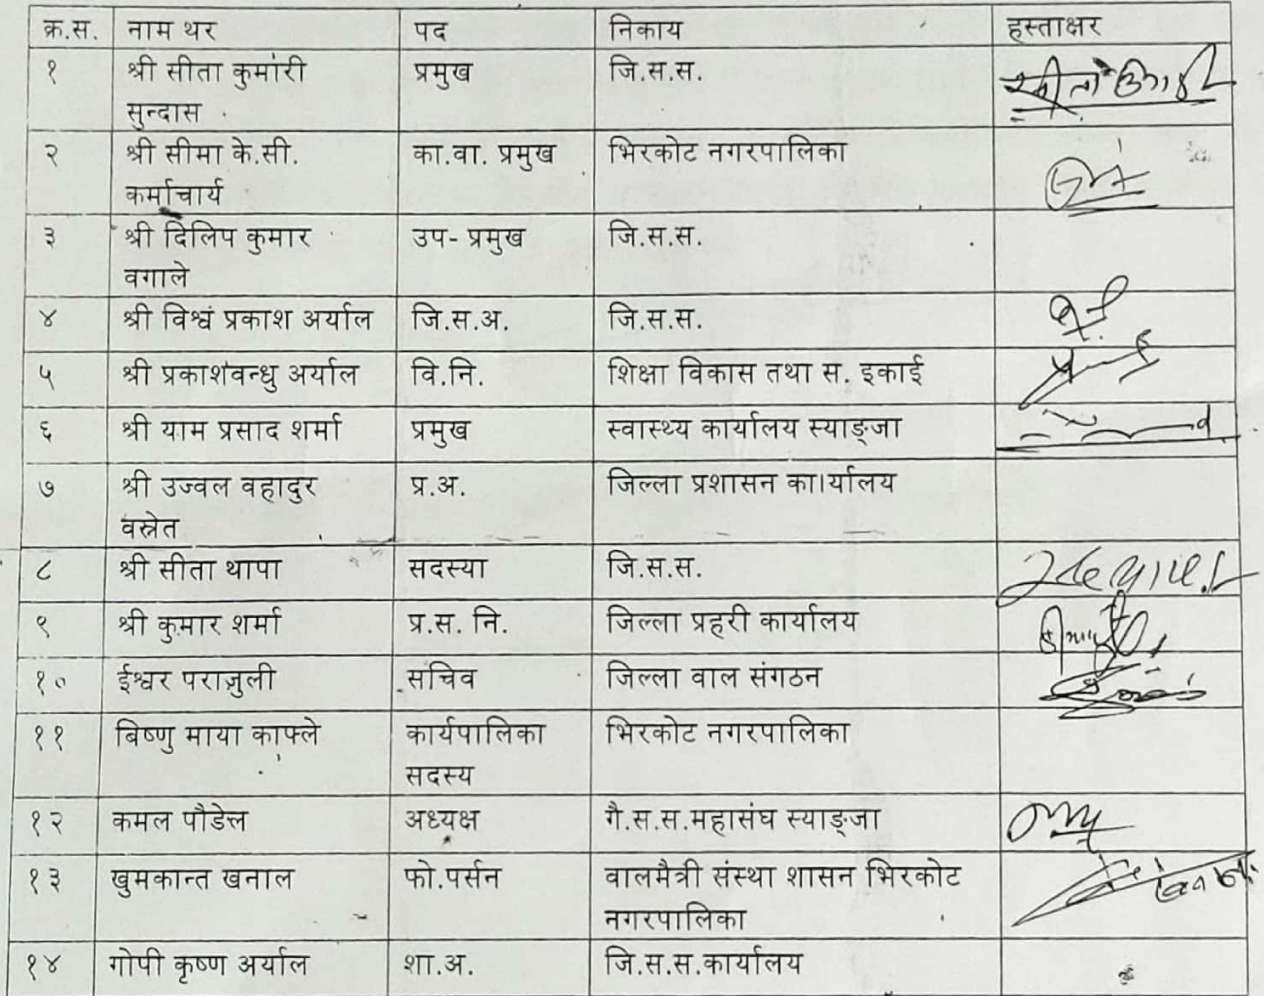 क्र.स. नाम थर पद निकाय हस्ताक्षर
१ श्री सीता कुमारी प्रमुख जि.स.स.
सुन्दास
२ श्री सीमा के.सी. का.वा. प्रमुख भिरकोट नगरपालिका
कर्माचार्य
३ श्री दिलिप कुमार उप- प्रमुख जि.स.स.
वगाले
४ श्री विश्व प्रकाश अर्याल जि.स.अ. जि.स.स.
५ श्री प्रकाशवन्धु अर्याल वि.नि. शिक्षा विकास तथा स. इकाई
६ श्री याम प्रसाद शर्मा प्रमुख स्वास्थ्य कार्यालय स्याङ्जा
७ श्री उज्वल वहादुर प्र.अ. जिल्ला प्रशासन का।र्यालय
वस्नेत
८ श्री सीता थापा सदस्या जि.स.स.
९ श्री कुमार शर्मा प्र.स. नि. जिल्ला प्रहरी कार्यालय
१० ईश्वर पराजुली सचिव जिल्ला वाल संगठन
११ बिष्णु माया काफ्ले कार्यपालिका भिरकोट नगरपालिका
सदस्य
१२ कमल पौडेल अध्यक्ष गै.स.स.महासंघ स्याङ्जा
१३ खुमकान्त खनाल फो.पर्सन वालमैत्री संस्था शासन भिरकोट
नगरपालिका
१४ गोपी कृष्ण अर्याल शा.अ. जि.स.स.कार्यालय